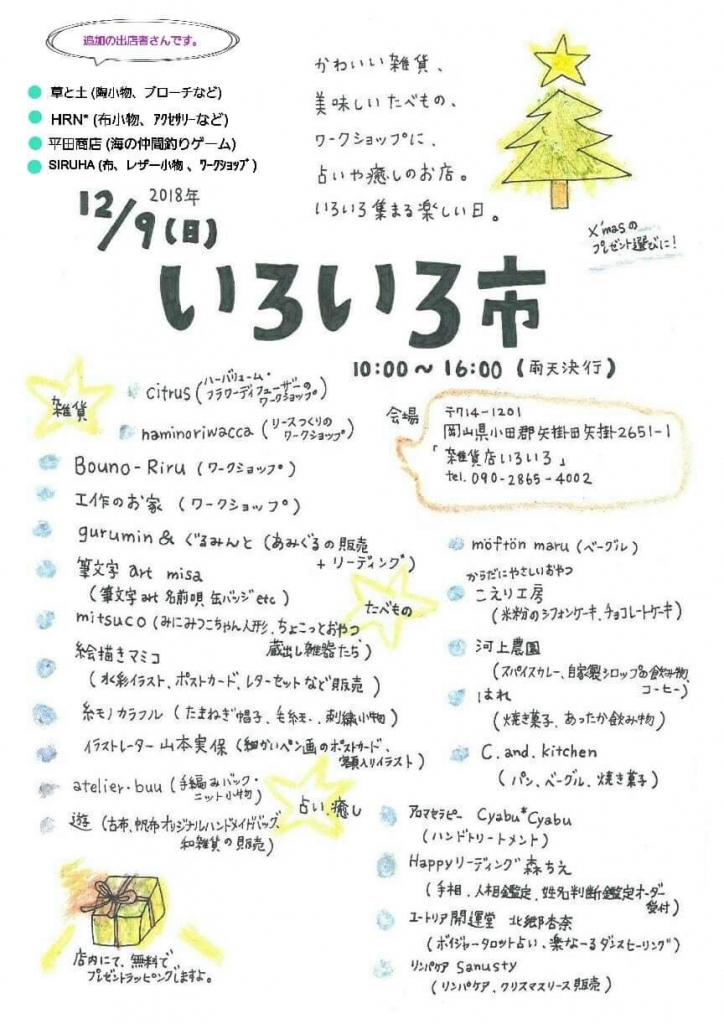 追加の出店者さんです。
草と土 (陶小物、ブローチなど)
HRN* (布小物、ｱｸｾｻﾘｰなど)
平田商店 (海の仲間釣りゲーム)
SIRUHA (布、レザー小物 、ﾜｰｸｼｮｯﾌﾟ)
かわいい雑貨、
美味しいたべもの、
ワークショップに、
占いや癒しのお店。
いろいろ集まる楽しい日。
X'masの
プレゼント選びに!
2018年
12/9(日)
いろいろ市
10:00〜16:00 (雨天決行)
会場
〒714-1201
岡山県小田郡矢掛田矢掛2651-1
「雑貨店いろいろ」
tel. 090-2865-4002
雑貨
citrus (ハーバリューム・
フラワーディフューザーの
ワークショップ)
haminoriwacca (リースつくりの
ワークショップ)
Bouno-Riru (ワークショップ)
工作のお家 (ワークショップ)
gurumin & ぐるみんと (あみぐるの販売
+ リーディング)
筆文字 art misa
(筆文字art 名前唄 缶バッジ etc)
mitsuco (みにみつこちゃん人形、ちょこっとおやつ、
蔵出し雑器たち)
絵描きマミコ
(水彩イラスト、ポストカード、レターセットなど販売)
糸モノカラフル (たまねぎ帽子、毛糸モノ、刺繍小物)
イラストレーター 山本実保 (細かいペン画のポストカード、
額入りイラスト)
atelier・buu (手編みバック・
ニット小物)
遊 (古布、帆布オリジナルハンドメイドバッグ、
和雑貨の販売)
たべもの
möftön maru (ベーグル)
からだにやさしいおやつ
こえり工房
(米粉のシフォンケーキ、チョコレートケーキ)
河上農園
(スパイスカレー、自家製シロップの飲み物、
コーヒー)
はれ
(焼き菓子、あったか飲み物)
C.and.kitchen
(パン、ベーグル、焼き菓子)
占い、癒し
アロマセラピー Cyabu*Cyabu
(ハンドトリートメント)
Happyリーディング 森ちえ
(手相、人相鑑定、姓名判断鑑定オーダー
受付)
ユートリア開運堂 北郷杏奈
(ボイジャータロット占い、楽なーるダンスヒーリング)
リンパケア Sanusty
(リンパケア、クリスマスリース販売)
店内にて、無料で
プレゼントラッピングしますよ。